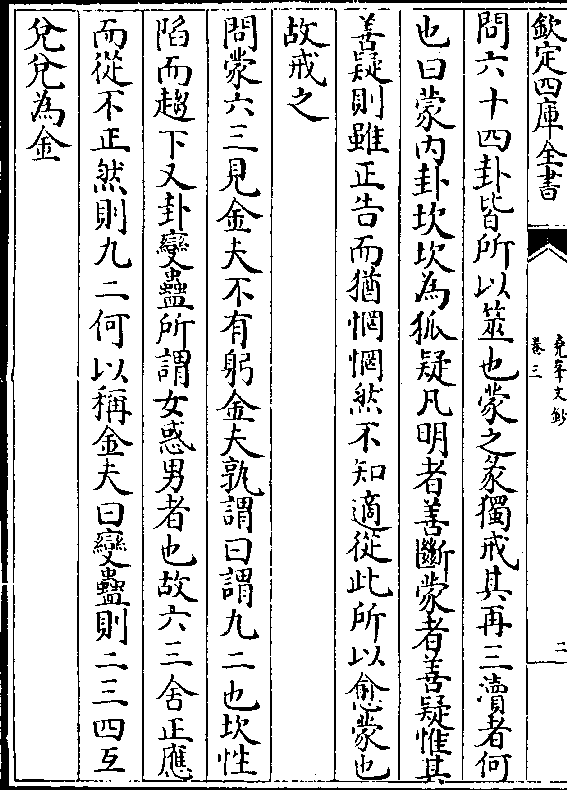 欽定四庫全書
堯峯文鈔
卷三
二
問六十四卦皆所以筮也蒙之彖獨戒其再三瀆者何
也曰蒙内卦坎坎為狐疑凡明者善斷蒙者善疑惟其
善疑則雖正告而猶惘惘然不知適從此所以愈蒙也
故戒之
問蒙六三見金夫不有躬金夫孰謂曰謂九二也坎性
陷而趨下又卦變蠱所謂女惑男者也故六三舍正應
而從不正然則九二何以稱金夫曰變蠱則二三四互
兌兌為金